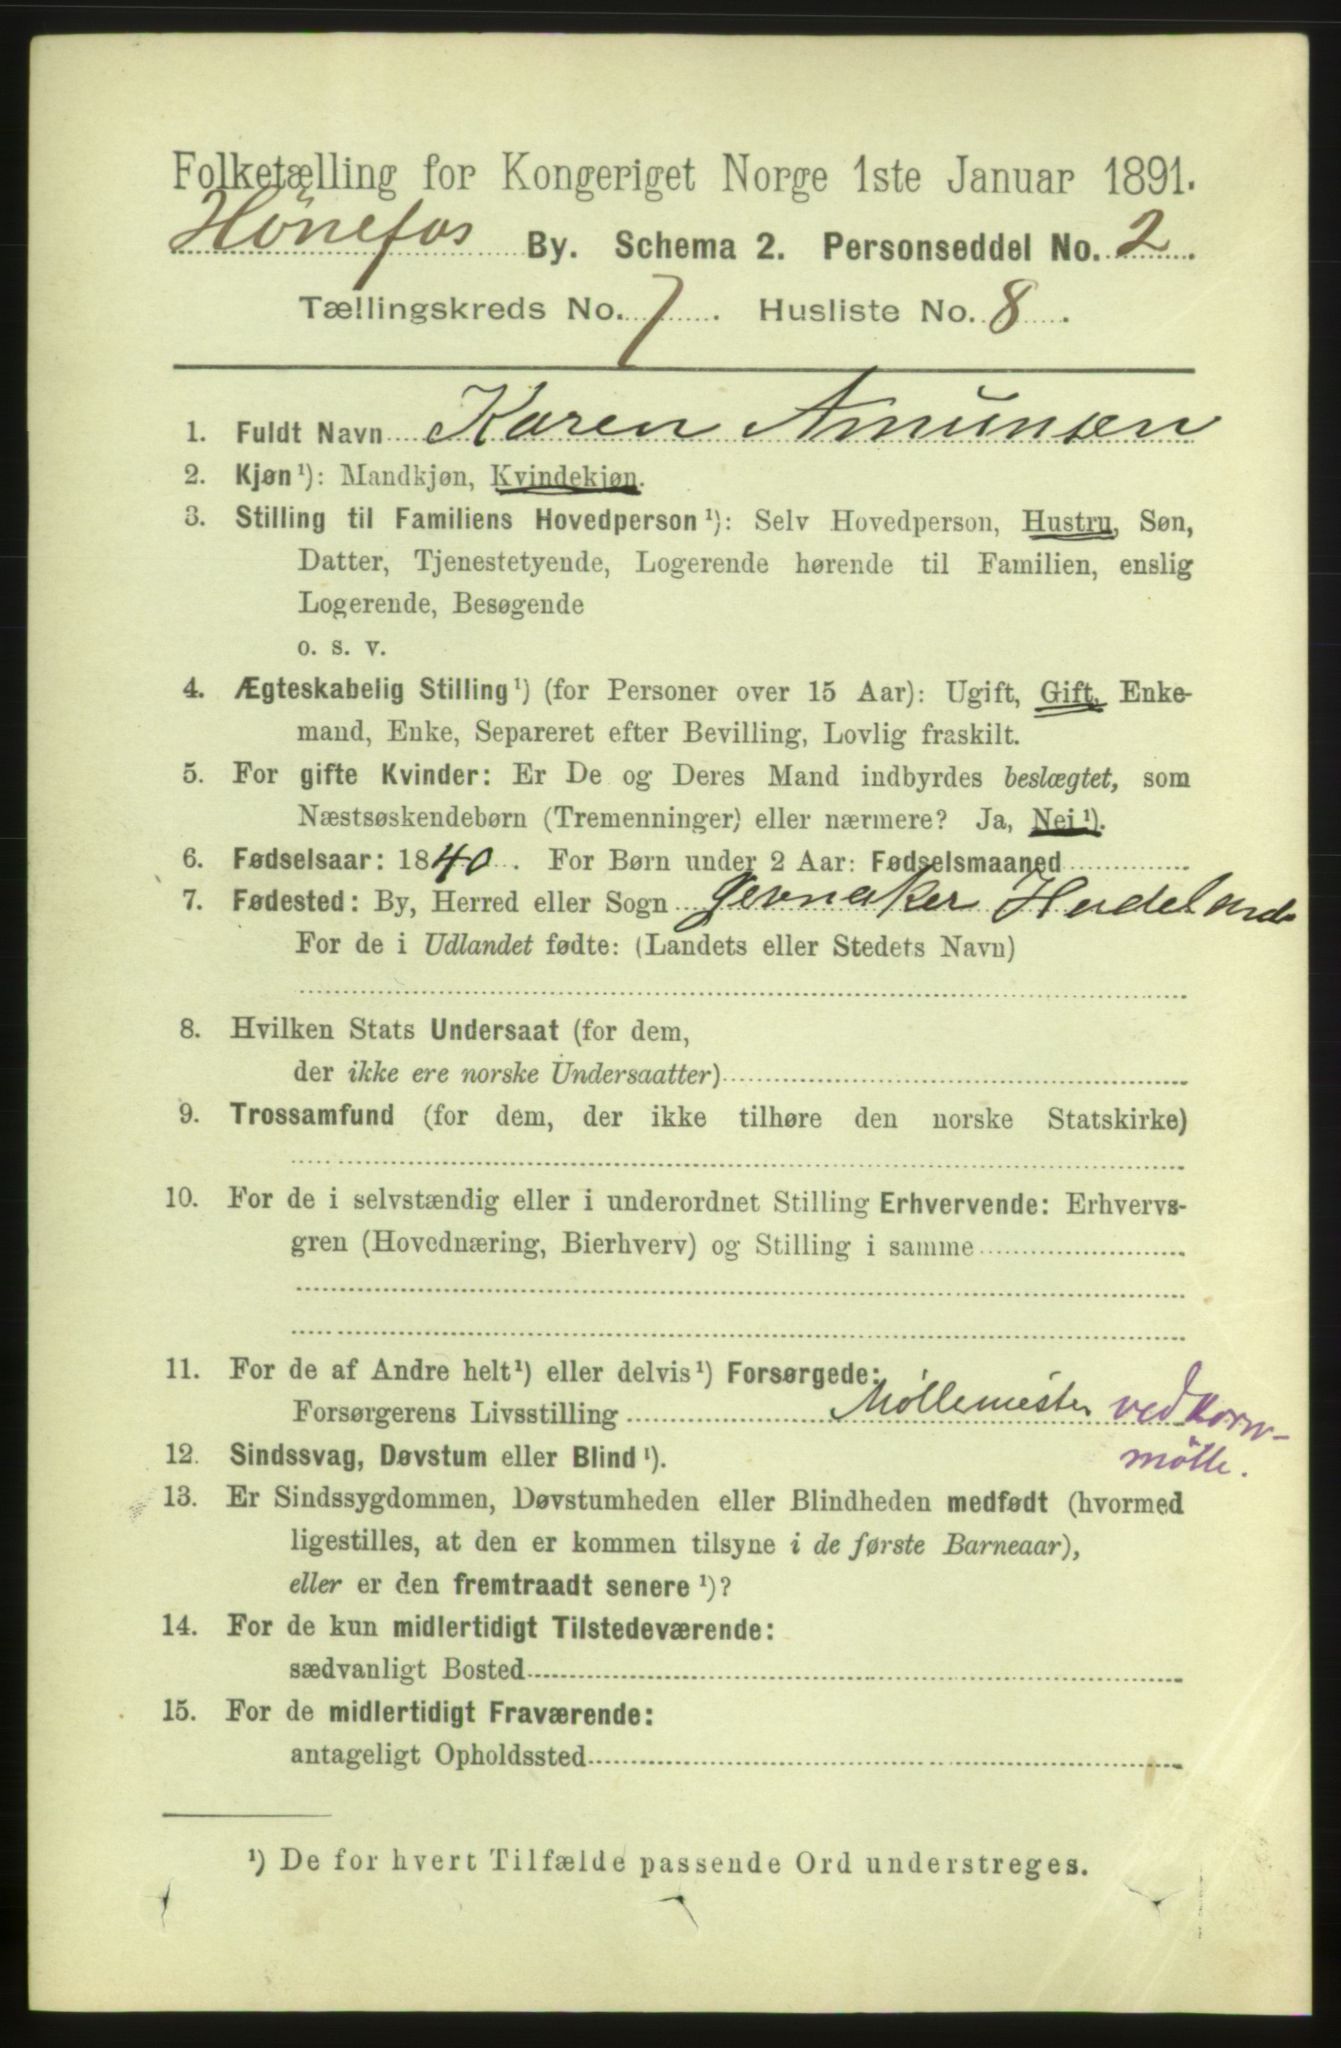 Folketælling for Kongeriget Norge 1ste Januar 1891.
Hönefos By. Schema 2. Personseddel No. 2.
Tællingskreds No. 7. Husliste No. 8.
1. Fuldt Navn Karen Amunsen
2. Kjøn¹): Mandkjøn, Kvindekjøn.
3. Stilling til Familiens Hovedperson¹): Selv Hovedperson, Hustru, Søn,
Datter, Tjenestetyende, Logerende hørende til Familien, enslig
Logerende, Besøgende
o. s. v.
4. Ægteskabelig Stilling¹) (for Personer over 15 Aar): Ugift, Gift, Enke-
mand, Enke, Separeret efter Bevilling, Lovlig fraskilt.
5. For gifte Kvinder: Er De og Deres Mand indbyrdes beslægtet, som
Næstsøskendebørn (Tremenninger) eller nærmere? Ja, Nei¹).
6. Fødselsaar: 1840. For Børn under 2 Aar: Fødselsmaaned
7. Fødested: By, Herred eller Sogn Jevnaker Hadeland
For de i Udlandet fødte: (Landets eller Stedets Navn)
8. Hvilken Stats Undersaat (for dem,
der ikke ere norske Undersaatter)
9. Trossamfund (for dem, der ikke tilhøre den norske Statskirke)
10. For de i selvstændig eller i underordnet Stilling Erhvervende: Erhvervs-
gren (Hovednæring, Bierhverv) og Stilling i samme
11. For de af Andre helt¹) eller delvis¹) Forsørgede:
Forsørgerens Livsstilling Möllemester ved Korn-
mölle.
12. Sindssvag, Døvstum eller Blind¹).
13. Er Sindssygdommen, Døvstumheden eller Blindheden medfødt (hvormed
ligestilles, at den er kommen tilsyne i de første Barneaar),
eller er den fremtraadt senere¹)?
14. For de kun midlertidigt Tilstedeværende:
sædvanligt Bosted
15. For de midlertidigt Fraværende:
antageligt Opholdssted
¹) De for hvert Tilfælde passende Ord understreges.